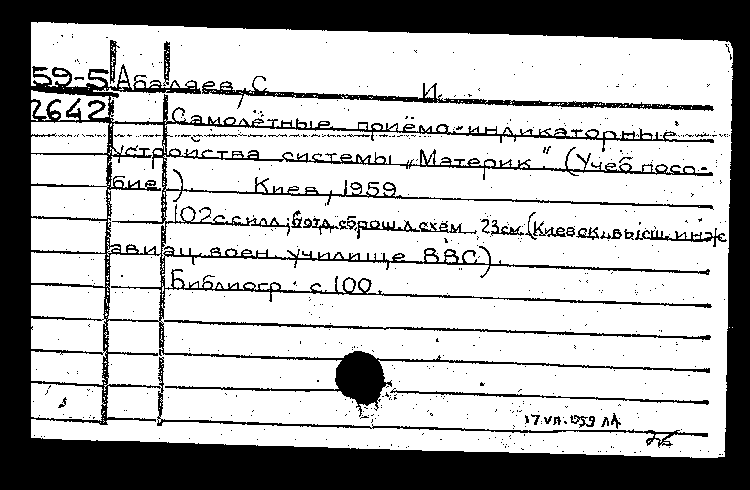 59-5 Абалаев, С И.
2642 Самолётные приёмо-индикаторные
устройства системы „Материк". (Учеб. посо-
бие). Киев, 1959.
102 с. с илл.; 6 отд. сброш. л. схем. 23 см. (Киевск. высш. инж.
авиац. воен. училище ВВС).
Библиогр.: с. 100.
17.VII.1959 ЛА